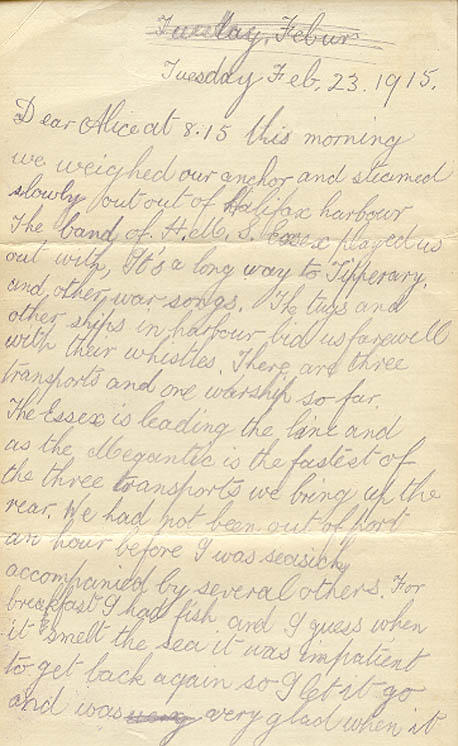 Tuesday, Febur
Tuesday Feb. 23. 1915.
Dear Alice at 8.15 this morning
we weighed our anchor and steamed
slowly out out of Halifax harbour
The band of H.M.S. Essex played us
out with, It's a long way to Tipperary,
and other war songs. The tugs and
other ships in harbour bid us farewell
with their whistles. There are three
transports and one warship so far.
The Essex is leading the line and
as the Megantic is the fastest of
the three transports we bring up the
rear. We had not been out of port
an hour before I was seasick
accompanied by several others. For
breakfast I had fish and I guess when
it smelt the sea it was impatient
to get back again so I let it go
and was very very glad when it